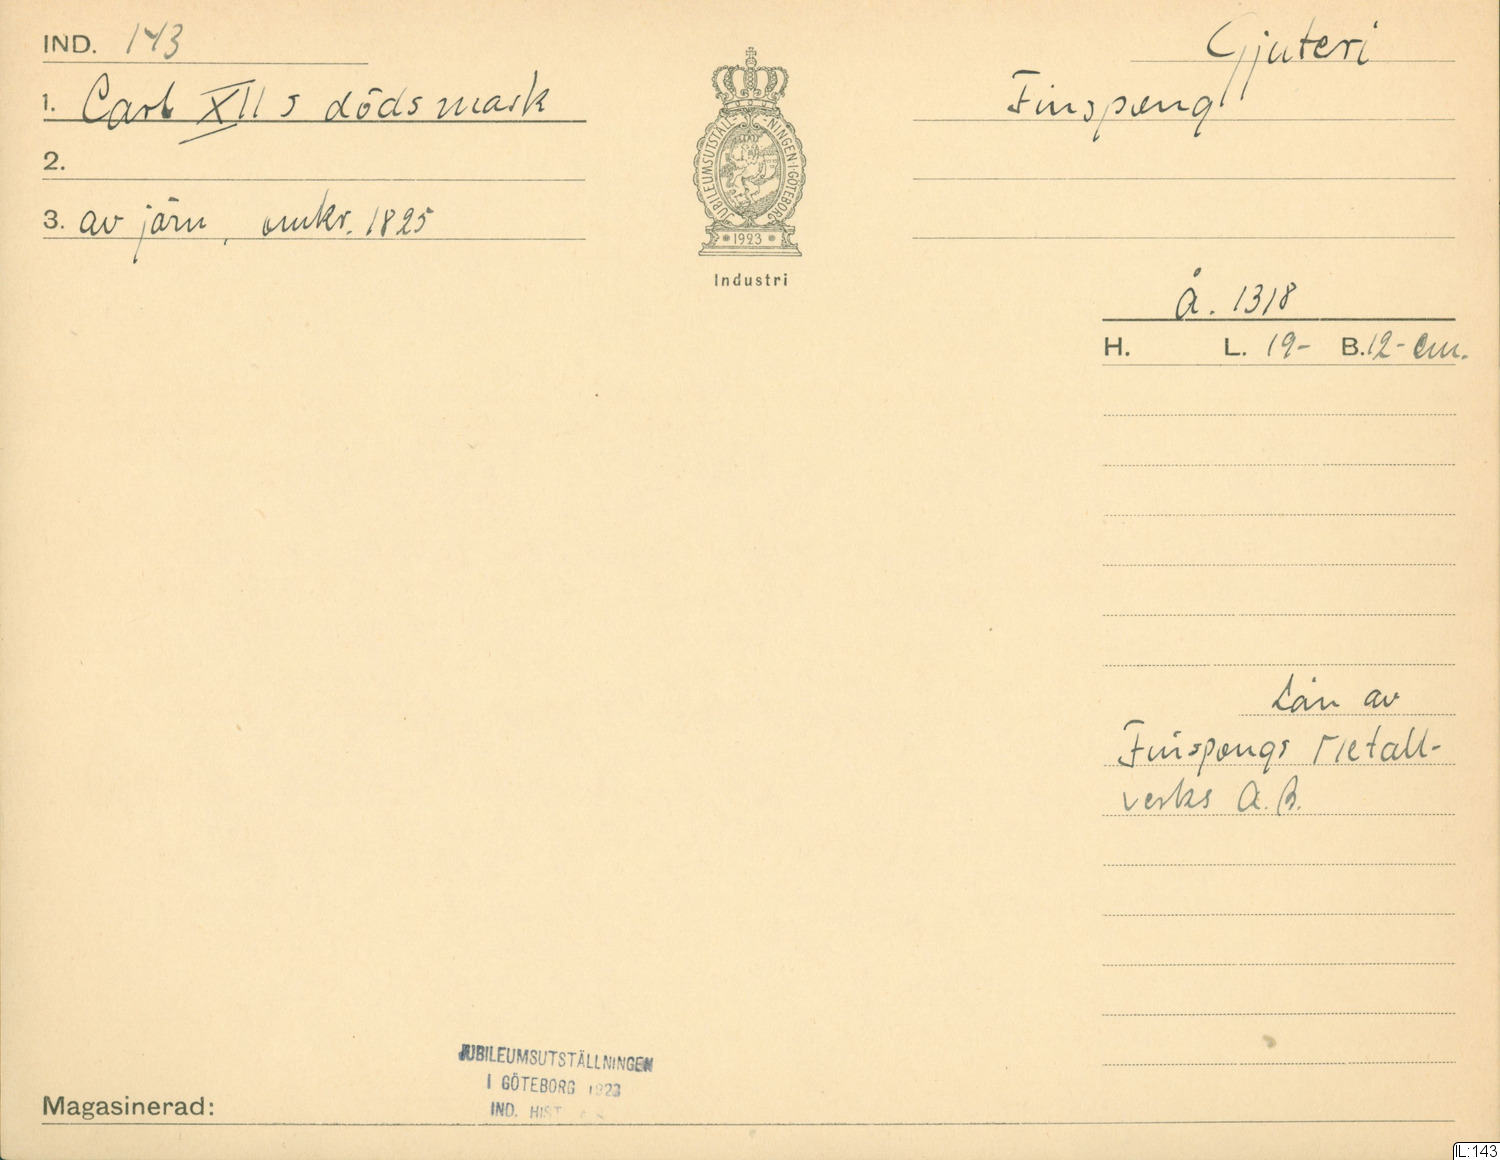 IND. 143
Gjuteri
1. Carl XII s dödsmask
Finspong
2.
3. av järn, omkr. 1825
JUBILEUMSUTSTÄLL- -NINGEN I GÖTEBORG
1923
Industri
Å. 1318
H. L. 19- B. 12- cm.
Lån av
Finspongs Metall-
verks A.B.
JUBILEUMSUTSTÄLLNINGEN
I GÖTEBORG 1923
IND. HIST
Magasinerad:
IL:143